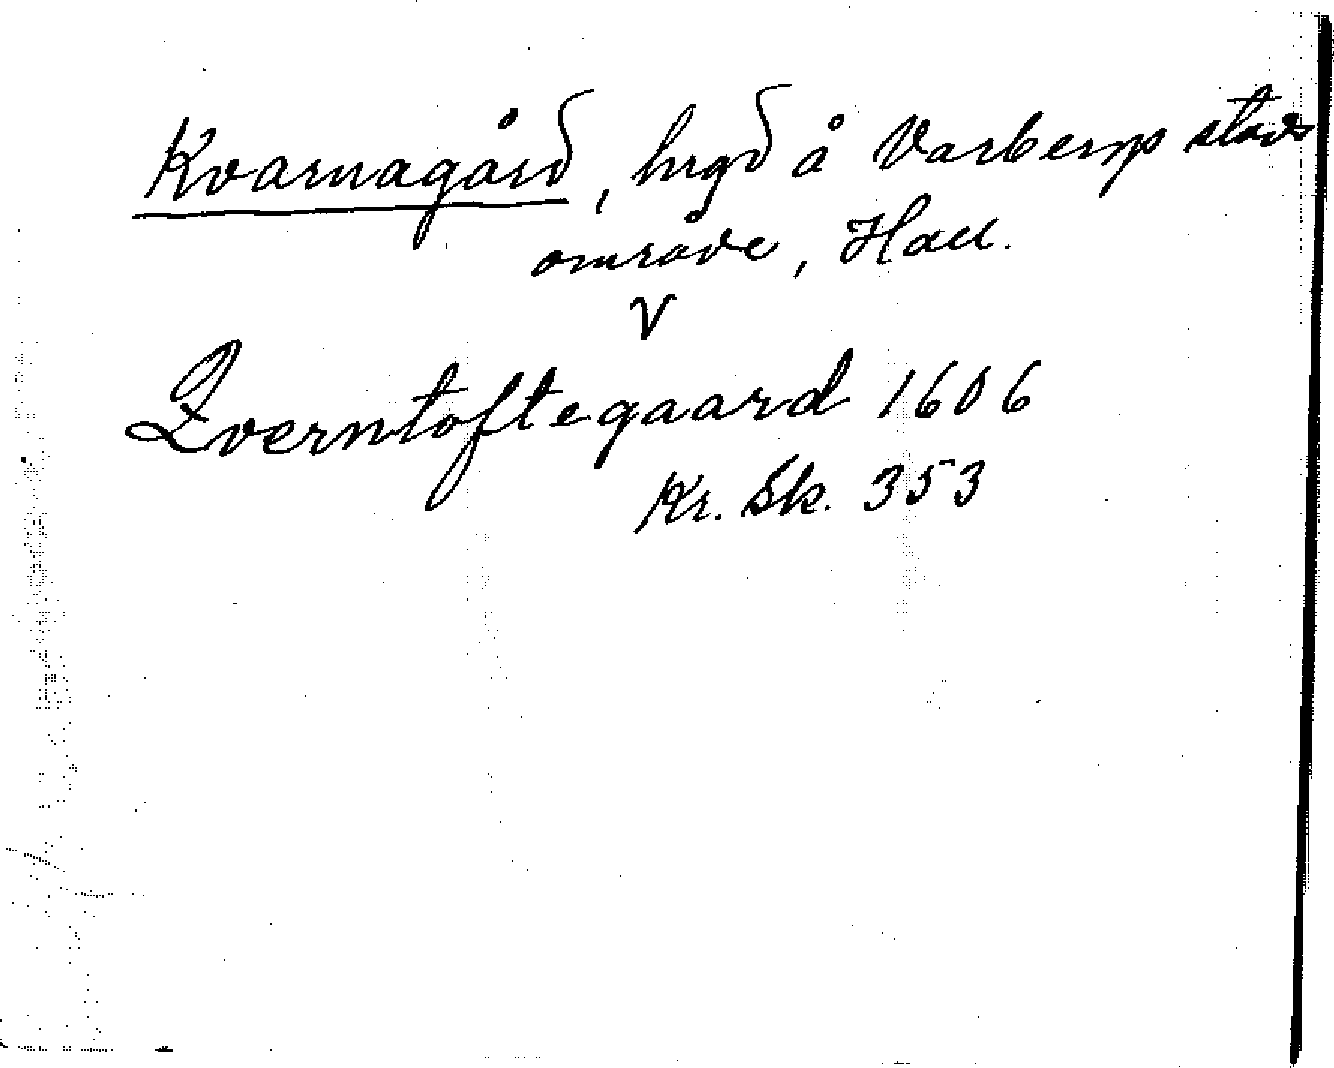 Kvarnagård, hrgd å Varbergs stads
område, Hall.
V
Qverntoftegaard 1606
Kr. Sk. 353